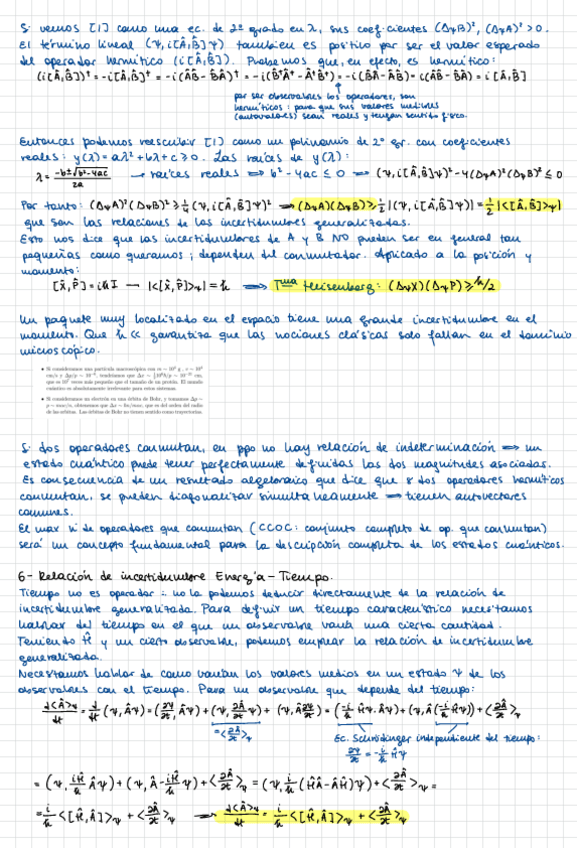 Si vemos [1] como una ec. de 2º grado en λ, sus coeficientes (ΔψB)², (ΔψA)² > 0.
El término lineal (ψ, i[Â,B̂]ψ) también es positivo por ser el valor esperado
del operador hermítico (i[Â,B̂]). Probemos que, en efecto, es hermítico:
(i[Â,B̂])⁺ = -i[Â,B̂]⁺ = -i(ÂB̂ - B̂Â)⁺ = -i(B̂⁺Â⁺ - Â⁺B̂⁺) = -i(B̂Â - ÂB̂) = i(ÂB̂ - B̂Â) = i[Â,B̂]
por ser observables los operadores, son
hermíticos: para que sus valores medios
(autovalores) sean reales y tengan sentido físico.
Entonces podemos reescribir [1] como un polinomio de 2º gr. con coeficientes
reales: y(λ) = aλ² + bλ + c ≥ 0. Las raíces de y(λ):
λ = -b±√b²-4ac / 2a → raíces reales ⇔ b² - 4ac ≤ 0 ⇔ (ψ, i[Â,B̂]ψ)² - 4(ΔψA)²(ΔψB)² ≤ 0
Por tanto: (ΔψA)²(ΔψB)² ≥ 1/4 (ψ, i[Â,B̂]ψ)² ⇒ (ΔψA)(ΔψB) ≥ 1/2 |(ψ, i[Â,B̂]ψ)| = 1/2 |<[Â,B̂]>ψ|
que son las relaciones de las incertidumbres generalizadas.
Esto nos dice que las incertidumbres de A y B NO pueden ser en general tan
pequeñas como queramos; dependen del conmutador. Aplicado a la posición y
momento:
[X̂,P̂] = iħI → |<[X̂,P̂]>ψ| = ħ ⇒ Tma Heisenberg: (ΔψX)(ΔψP) ≥ ħ/2
Un paquete muy localizado en el espacio tiene una grande incertidumbre en el
momento. Que ħ << garantiza que las nociones clásicas solo fallan en el dominio
microscópico.
Si dos operadores conmutan, en ppo no hay relación de indeterminación ⇒ un
estado cuántico puede tener perfectamente definidas las dos magnitudes asociadas.
Es consecuencia de un resultado algebraico que dice que si dos operadores hermíticos
conmutan, se pueden diagonalizar simultáneamente ⇒ tienen autovectores
comunes.
El max nº de operadores que conmutan (CCOC: conjunto completo de op. que conmutan)
será un concepto fundamental para la descripción completa de los estados cuánticos.
6- Relación de incertidumbre Energía-Tiempo.
Tiempo no es operador ∴ no la podemos deducir directamente de la relación de
incertidumbre generalizada. Para definir un tiempo característico necesitamos
hablar del tiempo en el que un observable varía una cierta cantidad.
Teniendo Ĥ y un cierto observable, podemos emplear la relación de incertidumbre
generalizada.
Necesitamos hablar de como varían los valores medios en un estado ψ de los
observables con el tiempo. Para un observable que depende del tiempo:
d<Â>ψ/dt = d/dt (ψ, Âψ) = (∂ψ/∂t, Âψ) + (ψ, ∂Â/∂t ψ) + (ψ, Â ∂ψ/∂t) = (-i/ħ Ĥψ, Âψ) + (ψ, Â(-i/ħ Ĥψ)) + <∂Â/∂t>ψ
= <∂Â/∂t>ψ
Ec. Schrödinger independiente del tiempo:
∂ψ/∂t = -i/ħ Ĥψ
= (ψ, iĤ/ħ Âψ) + (ψ, Â -iĤ/ħ ψ) + <∂Â/∂t>ψ = (ψ, i/ħ (ĤÂ - ÂĤ)ψ) + <∂Â/∂t>ψ =
= i/ħ <[Ĥ,Â]>ψ + <∂Â/∂t>ψ → d<Â>ψ/dt = i/ħ <[Ĥ,Â]>ψ + <∂Â/∂t>ψ